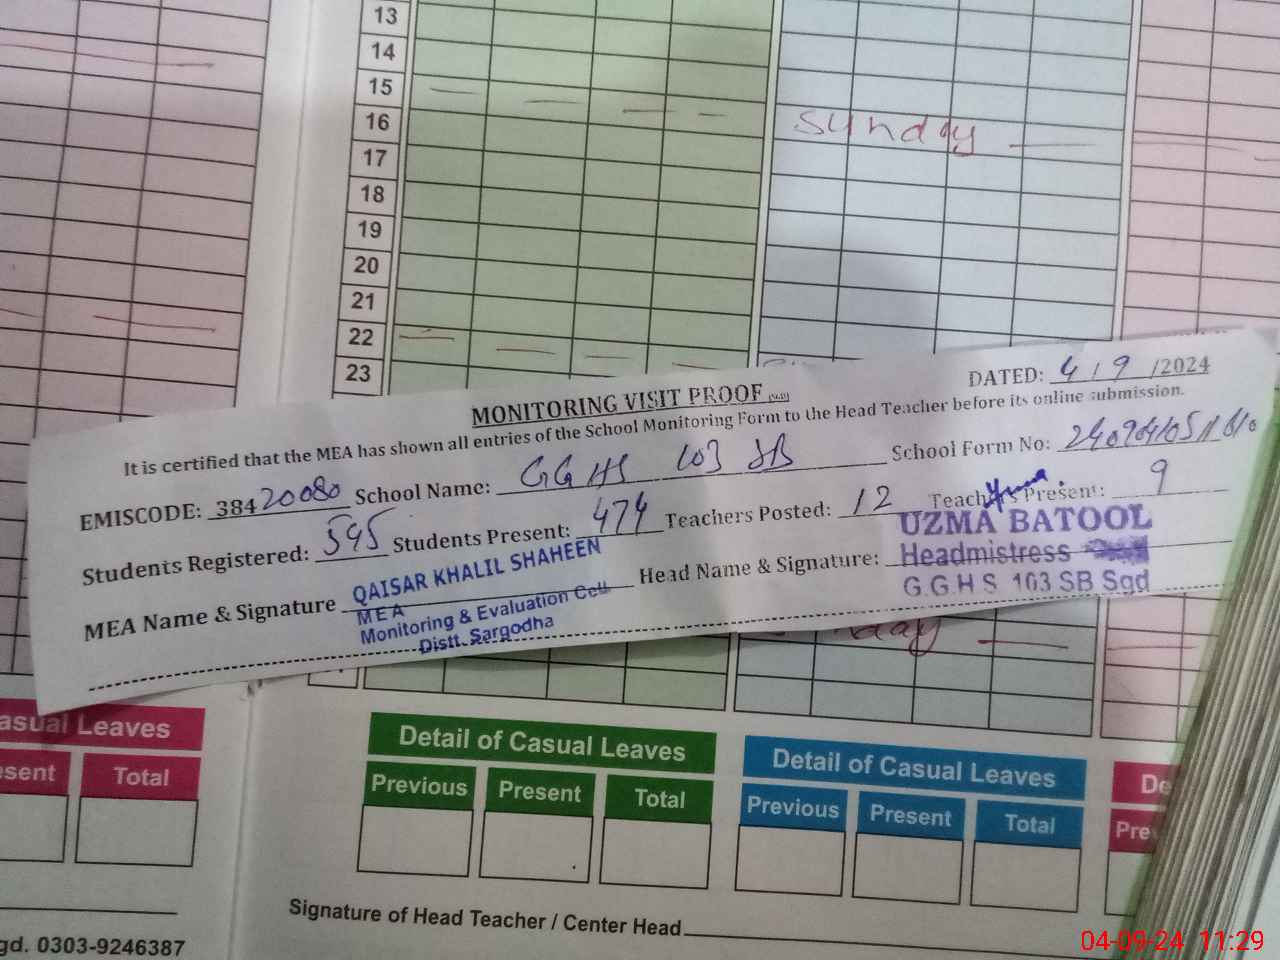 13
14
15
16
17
18
19
20
21
22
23
Sunday
MONITORING VISIT PROOF
DATED: 4/9/2024
It is certified that the MEA has shown all entries of the School Monitoring Form to the Head Teacher before its online submission.
EMISCODE: 38420080 School Name: GGHS 103 SB School Form No:
Students Registered: 595 Students Present: 474 Teachers Posted: 12 Teachers Present: 9
MEA Name & Signature QAISAR KHALIL SHAHEEN
MEA
Monitoring & Evaluation Cell
Distt. Sargodha
Head Name & Signature: UZMA BATOOL
Headmistress
G.G.H S 103 SB Sgd
asual Leaves
esent Total
Detail of Casual Leaves
Previous Present Total
Detail of Casual Leaves
Previous Present Total
De
Prev
Signature of Head Teacher / Center Head
gd. 0303-9246387
04-09-24 11:29